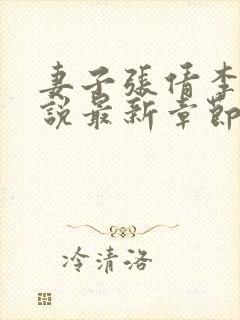 妻子張倩李
說最新章節
冷清洛